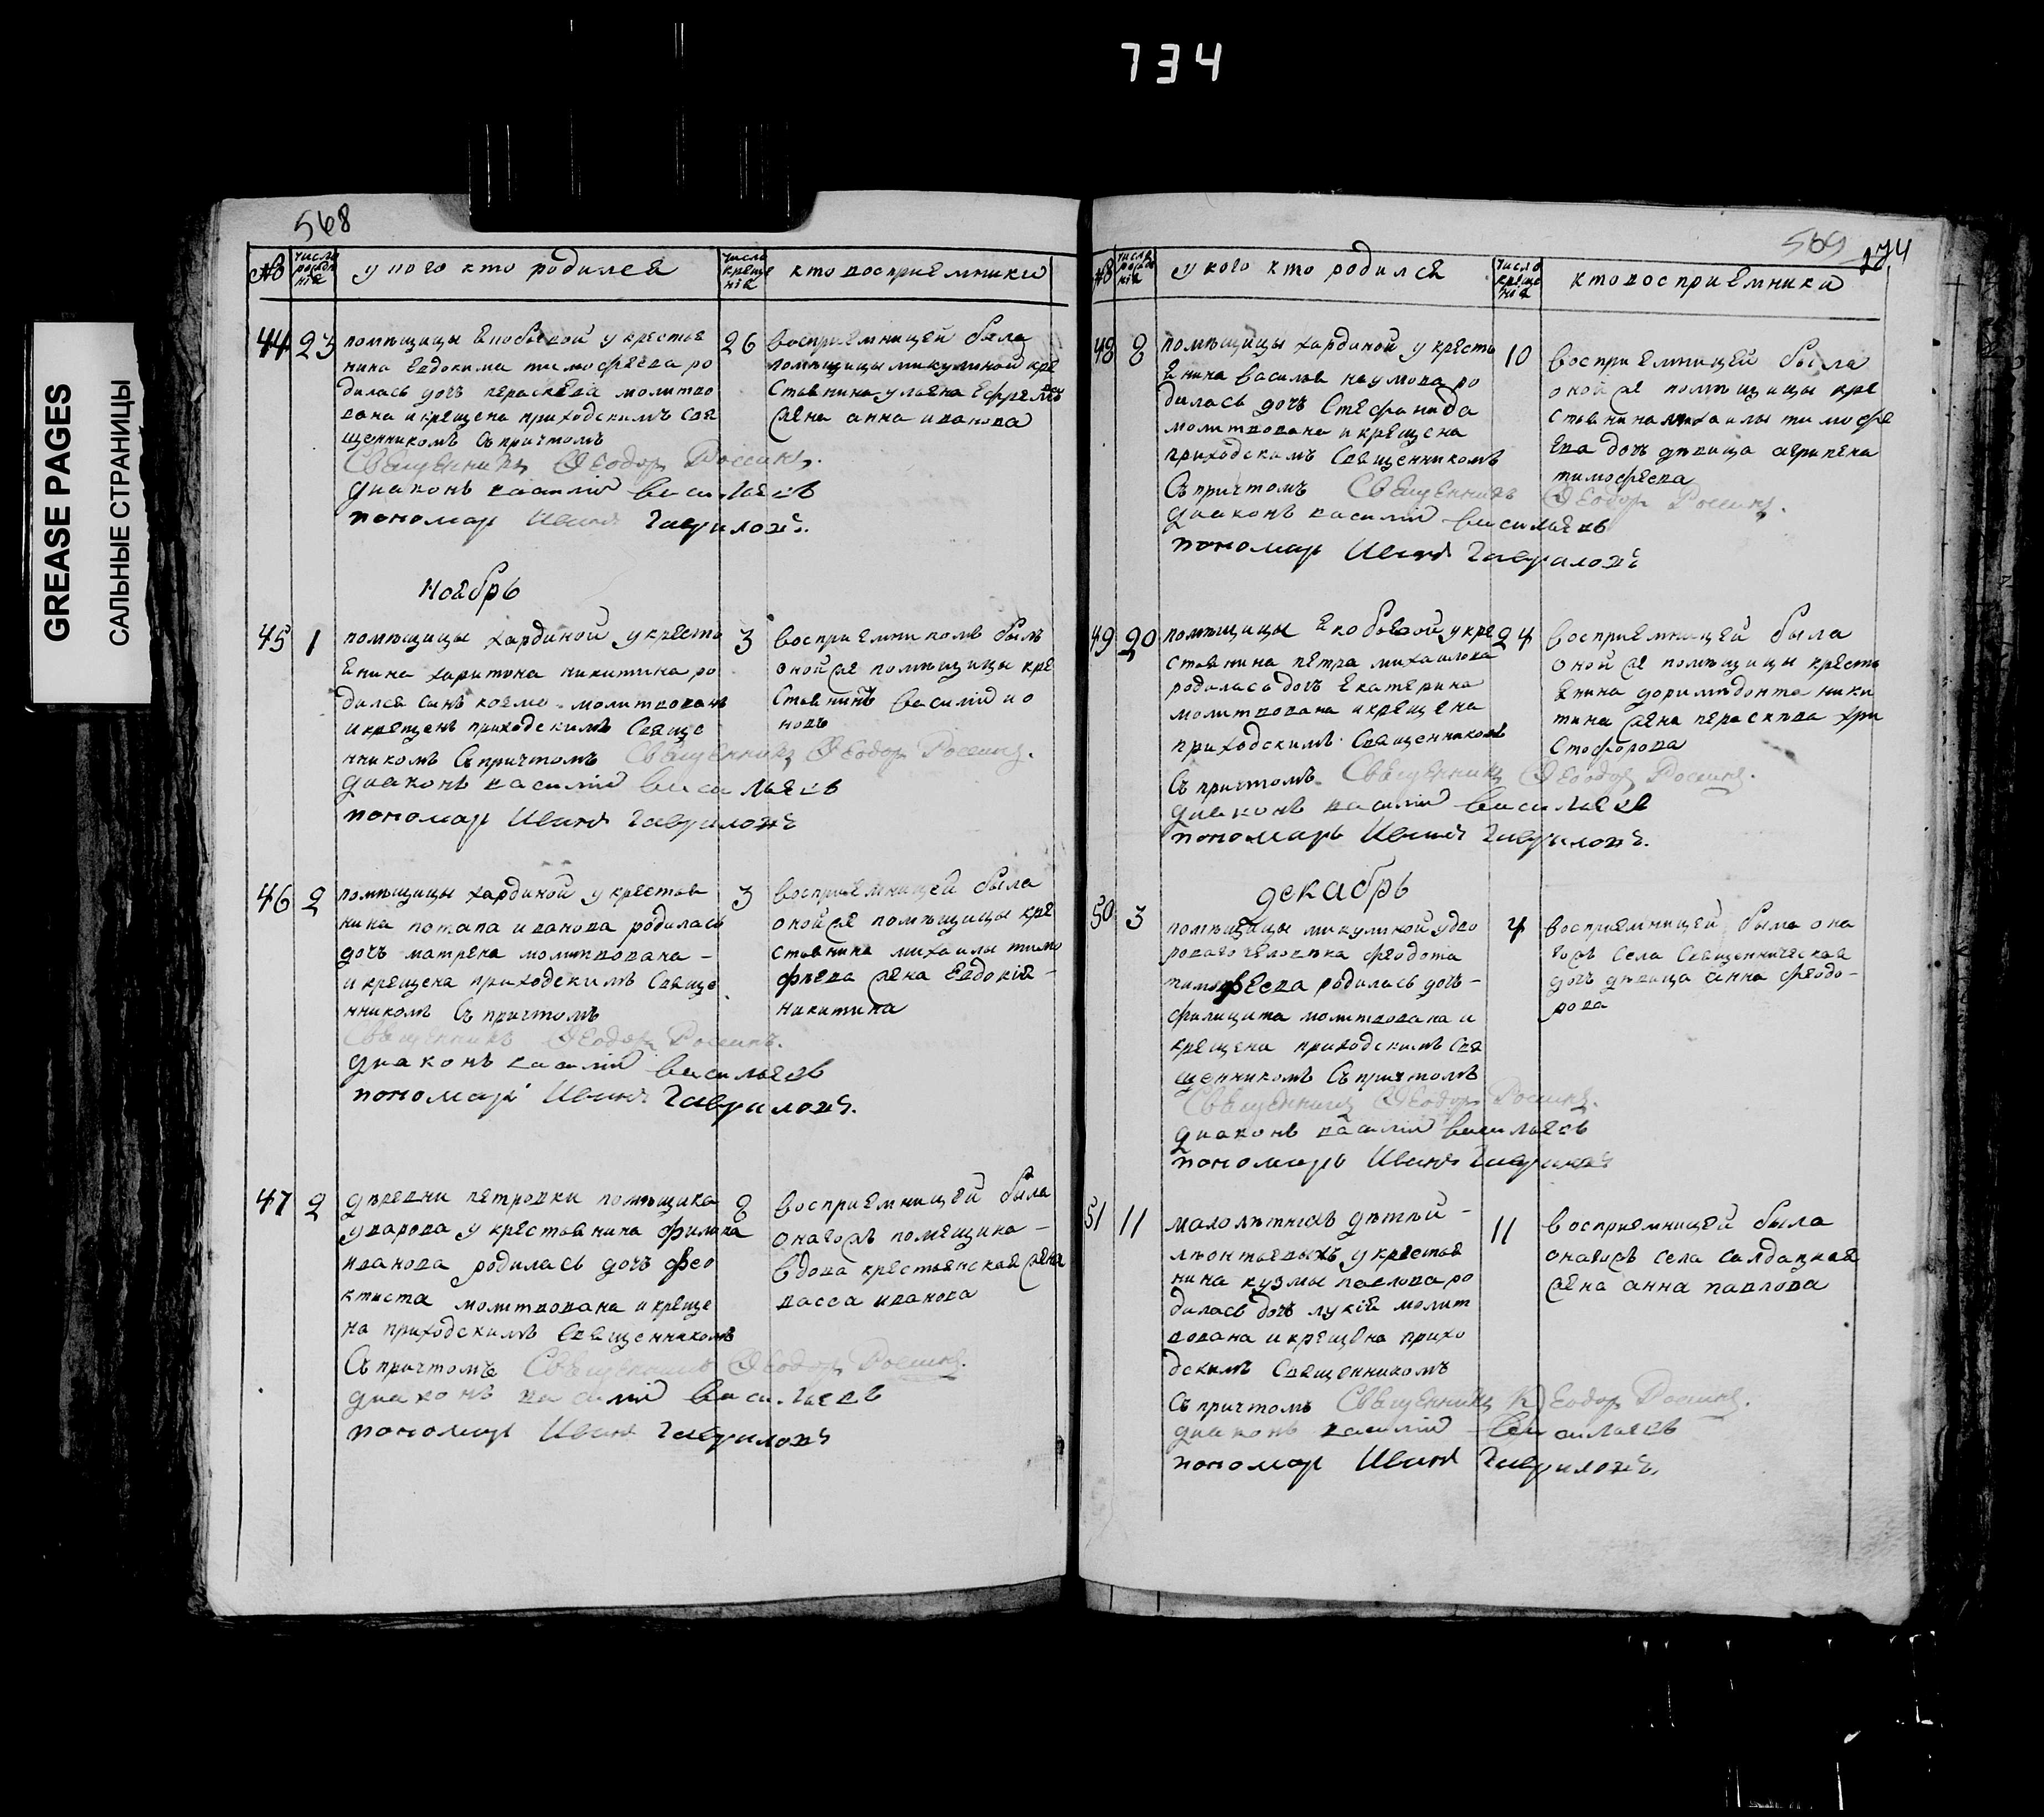 734
GREASE PAGES
САЛЬНЫЕ СТРАНИЦЫ
568
№ число рожденія у кого кто родился число крещенія кто восприемники
44 23 помѣщицы Якобьевой у крестья
нина Евдокима тимофѣева ро
дилась дочь параскева молитво
вана и крещена приходскимъ свя
щенникомъ съ причтомъ
Священникъ Ѳеодоръ Россинъ.
диаконъ василій васильевъ
пономарь Иванъ Гавриловъ.
26 восприемницей была
помѣщицы микулиной кре
стьянина ульяна Ефремова
жена анна иванова
Ноябрь
45 1 помѣщицы хардиной у кресть
янина харитона никитина ро
дился сынъ козма молитвованъ
и крещенъ приходскимъ свяще
нникомъ съ причтомъ Священникъ Ѳеодоръ Россинъ.
диаконъ василій васильевъ
пономарь Иванъ Гавриловъ
3 восприемникомъ былъ
оной же помѣщицы кре
стьянинъ василій ио
новъ
46 2 помѣщицы хардиной у крестья
нина потапа иванова родилась
дочь матрена молитвована
и крещена приходскимъ свяще
нникомъ съ причтомъ
Священникъ Ѳеодоръ Россинъ.
диаконъ василій васильевъ
пономарь Иванъ Гавриловъ.
3 восприемницей была
оной же помѣщицы кре
стьянина михаилы тимо
фѣева жена Евдокія
никитина
47 2 деревни петровки помѣщика
уварова у крестьянина филипа
иванова родилась дочь фео
ктиста молитвована и креще
на приходскимъ священникомъ
съ причтомъ Священникъ Ѳеодоръ Россинъ.
диаконъ василій васильевъ
пономарь Иванъ Гавриловъ
8 восприемницей была
онагожъ помещика
вдова крестьянская жена
васса иванова
569
274
№ число рожденія у кого кто родился число крещенія кто восприемники
48 8 помѣщицы хардиной у кресть
янина василья наумова ро
дилась дочь Стефанида
молитвована и крещена
приходскимъ священникомъ
съ причтомъ Священникъ Ѳеодоръ Россинъ.
диаконъ василій васильевъ
пономарь Иванъ Гавриловъ
10 восприемницей была
оной же помѣщицы кре
стьянина михаилы тимофе
ева дочь дѣвица агрипена
тимофеева
49 20 помѣщицы Якобьевой у кре
стьянина петра михаилова
родилась дочь Екатерина
молитвована и крещена
приходскимъ священникомъ
съ причтомъ Священникъ Ѳеодоръ Россинъ.
диаконъ василій васильевъ
пономарь Иванъ Гавриловъ.
24 восприемницей была
оной же помѣщицы кресть
янина доримидонта ники
тина жена параскева хри
стофорова
декабрь
50 3 помѣщицы микулиной у дво
роваго человѣка феодота
тимофеева родилась дочь
филицата молитвована и
крещена приходскимъ свя
щенникомъ съ причтомъ
Священникъ Ѳеодоръ Россинъ.
диаконъ василій васильевъ
пономарь Иванъ Гавриловъ
4 восприемницей была она
гожъ села священническая
дочь дѣвица анна феодо-
рова
51 11 малолѣтныхъ дѣтей
леонтьевыхъ у крестья
нина кузмы павлова ро
дилась дочь лукія молит
вована и крещена прихо
дскимъ священникомъ
съ причтомъ Священникъ Ѳеодоръ Россинъ.
диаконъ василій васильевъ
пономарь Иванъ Гавриловъ.
11 восприемницей была
онагожъ села салдацкая
жена анна павлова